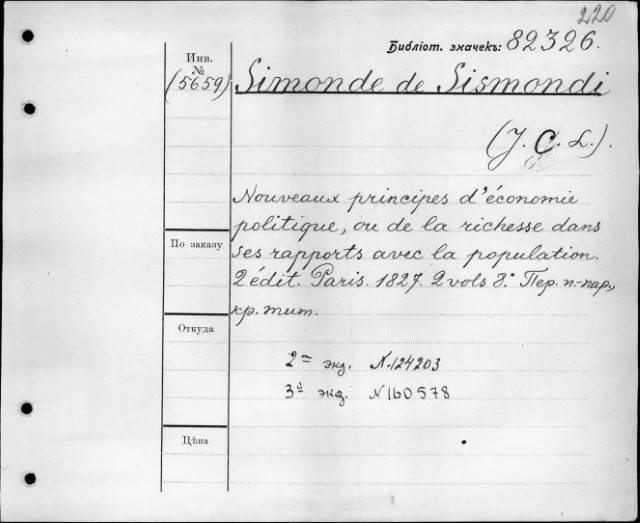 220
Библіот. значекъ: 82326.
Инв.
№
(5659)
Simonde de Sismondi
(J. C. L.).
Nouveaux principes d'économie
politique, ou de la richesse dans
ses rapports avec la population.
2 édit. Paris. 1827. 2 vols 8.° Пер. п.-пар.,
кр. тит.
По заказу
Откуда
2ᵐ экз. N.124203
3ій экз. N160578
Цѣна